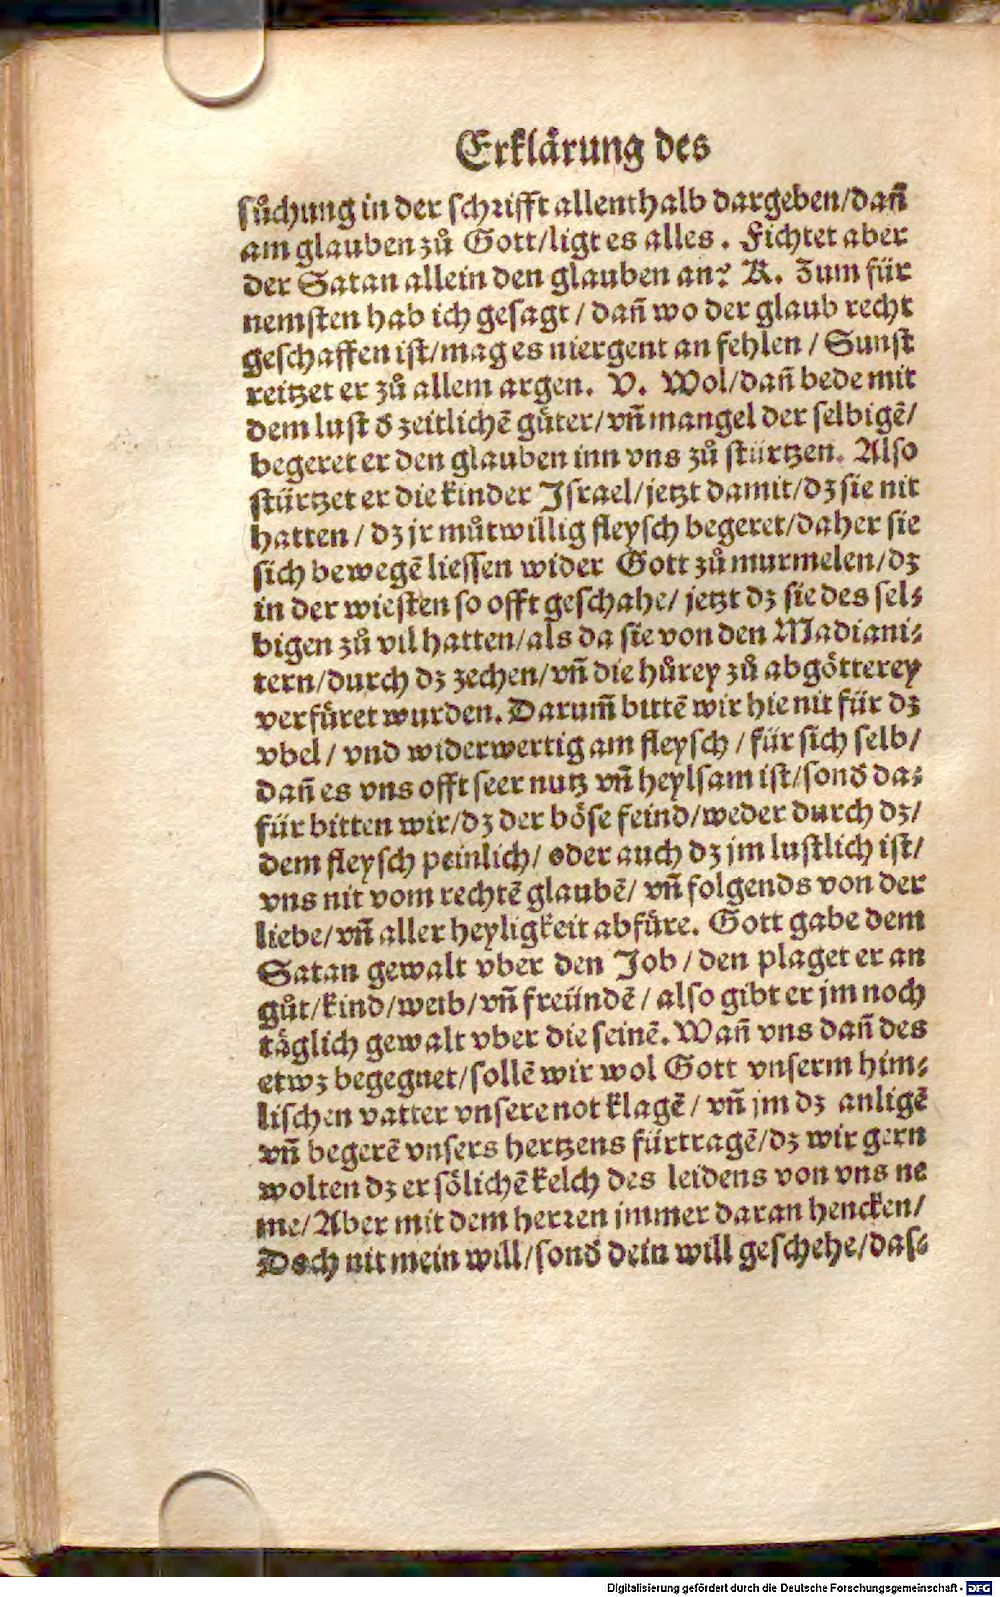 Erklärung des
sůchung in der schrifft allenthalb dargeben/dañ
am glauben zů Gott/ligt es alles. Fichtet aber
der Satan allein den glauben an? K. Zum für
nemsten hab ich gesagt/dañ wo der glaub recht
geschaffen ist/mag es niergent an fehlen/Sunst
reitzet er zů allem argen. V. Wol/dañ bede mit
dem lust d̄ zeitlichē gůter/vñ mangel der selbigē/
begeret er den glauben inn vns zů stürtzen. Also
stürtzet er die kinder Israel/jetzt damit/dz sie nit
hatten/dz jr můtwillig fleysch begeret/daher sie
sich bewegē liessen wider Gott zů murmelen/dz
in der wiesten so offt geschahe/jetzt dz sie des sel⸗
bigen zů vil hatten/als da sie von den Madiani⸗
tern/durch dz zechen/vñ die hůrey zů abgötterey
verfüret wurden. Darum̄ bittē wir hie nit für dz
vbel/vnd widerwertig am fleysch/für sich selb/
dañ es vns offt seer nutz vñ heylsam ist/sond̄ da⸗
für bitten wir/dz der böse feind/weder durch dz/
dem fleysch peinlich/oder auch dz jm lustlich ist/
vns nit vom rechtē glaubē/vñ folgends von der
liebe/vñ aller heyligkeit abfüre. Gott gabe dem
Satan gewalt vber den Job/den plaget er an
gůt/kind/weib/vñ freündē/also gibt er jm noch
täglich gewalt vber die seinē. Wañ vns dañ des
etwz begegnet/sollē wir wol Gott vnserm him⸗
lischen vatter vnsere not klagē/vñ jm dz anligē
vñ begerē vnsers hertzens fürtragē/dz wir gern
wolten dz er sölichē kelch des leidens von vns ne
me/Aber mit dem hertzen jmmer daran hencken/
Doch nit mein will/sond̄ dein will geschehe/das⸗
Digitalisierung gefördert durch die Deutsche Forschungsgemeinschaft - DFG